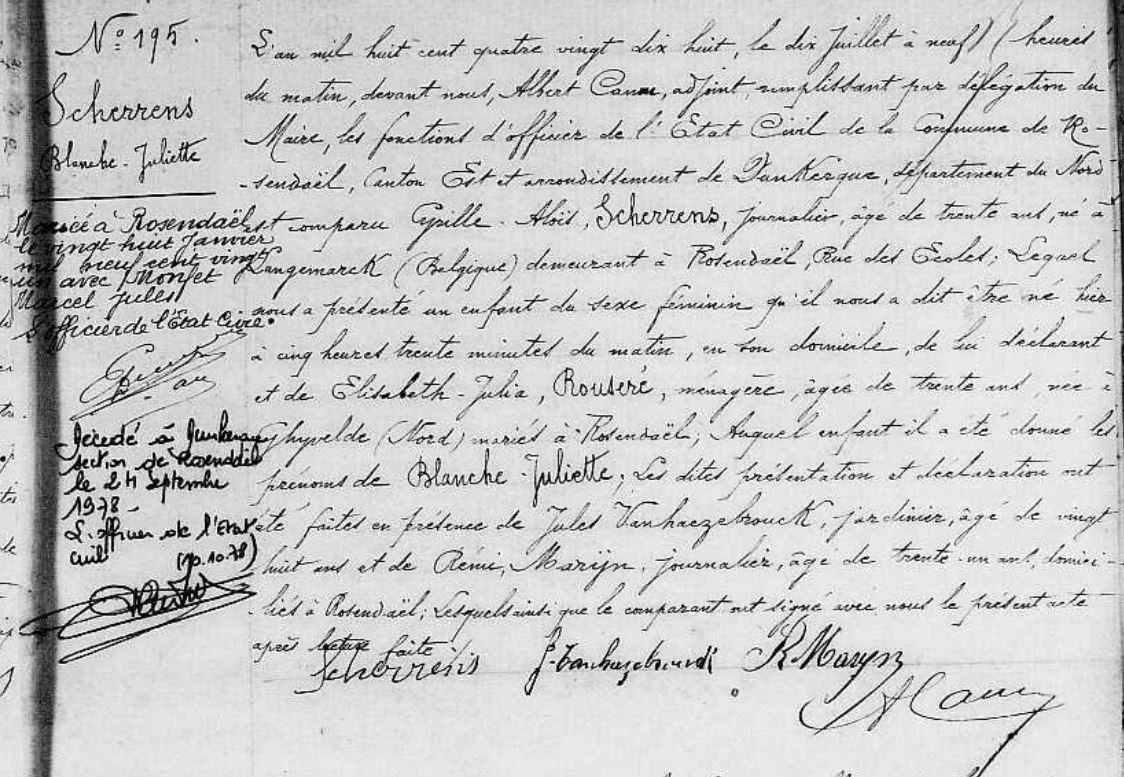 Nº 195.
Scherrens
Blanche-Juliette
Mariée à Rosendaël
le vingt huit Janvier
mil neuf cent vingt
un avec Monjet
Marcel Jules
L'officier de l'Etat Civil.
Décédé à Dunkerque
section de Rosendaël
le 24 septembre
1978 -
L'officier de l'Etat
civil (10.10.78)
L'an mil huit cent quatre vingt dix huit, le dix Juillet à neuf heures
du matin, devant nous, Albert Canu, adjoint, remplissant par délégation du
Maire, les fonctions d'officier de l'Etat Civil de la Commune de Ro-
-sendaël, Canton Est et arrondissement de Dunkerque, département du Nord
est comparu Cyrille-Aloïs, Scherrens, journalier, âgé de trente ans, né à
Langemarck (Belgique) demeurant à Rosendaël, Rue des Ecoles; Lequel
nous a présenté un enfant du sexe féminin qu'il nous a dit être né hier
à cinq heures trente minutes du matin, en son domicile, de lui déclarant
et de Elisabeth-Julia, Rouseré, ménagère, âgée de trente ans, née à
Ghyvelde (Nord) mariés à Rosendaël; Auquel enfant il a été donné les
prénoms de Blanche-Juliette; Les dites présentation et déclaration ont
été faites en présence de Jules Vanhaezebrouck, jardinier, âgé de vingt
huit ans et de Rémi, Marijn, journalier, âgé de trente-un ans, domici-
-liés à Rosendaël; Lesquels ainsi que le comparant ont signé avec nous le présent acte
après lecture faite
Scherrens J. Vanhazebrouck R Maryn
A Canu